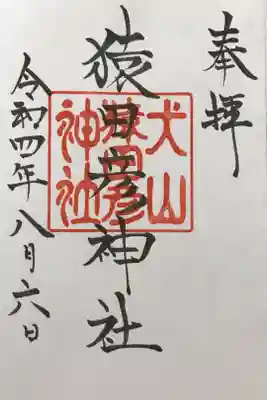 奉拝
猿田彦神社
令和四年八月六日
犬山
猿田彦
神社